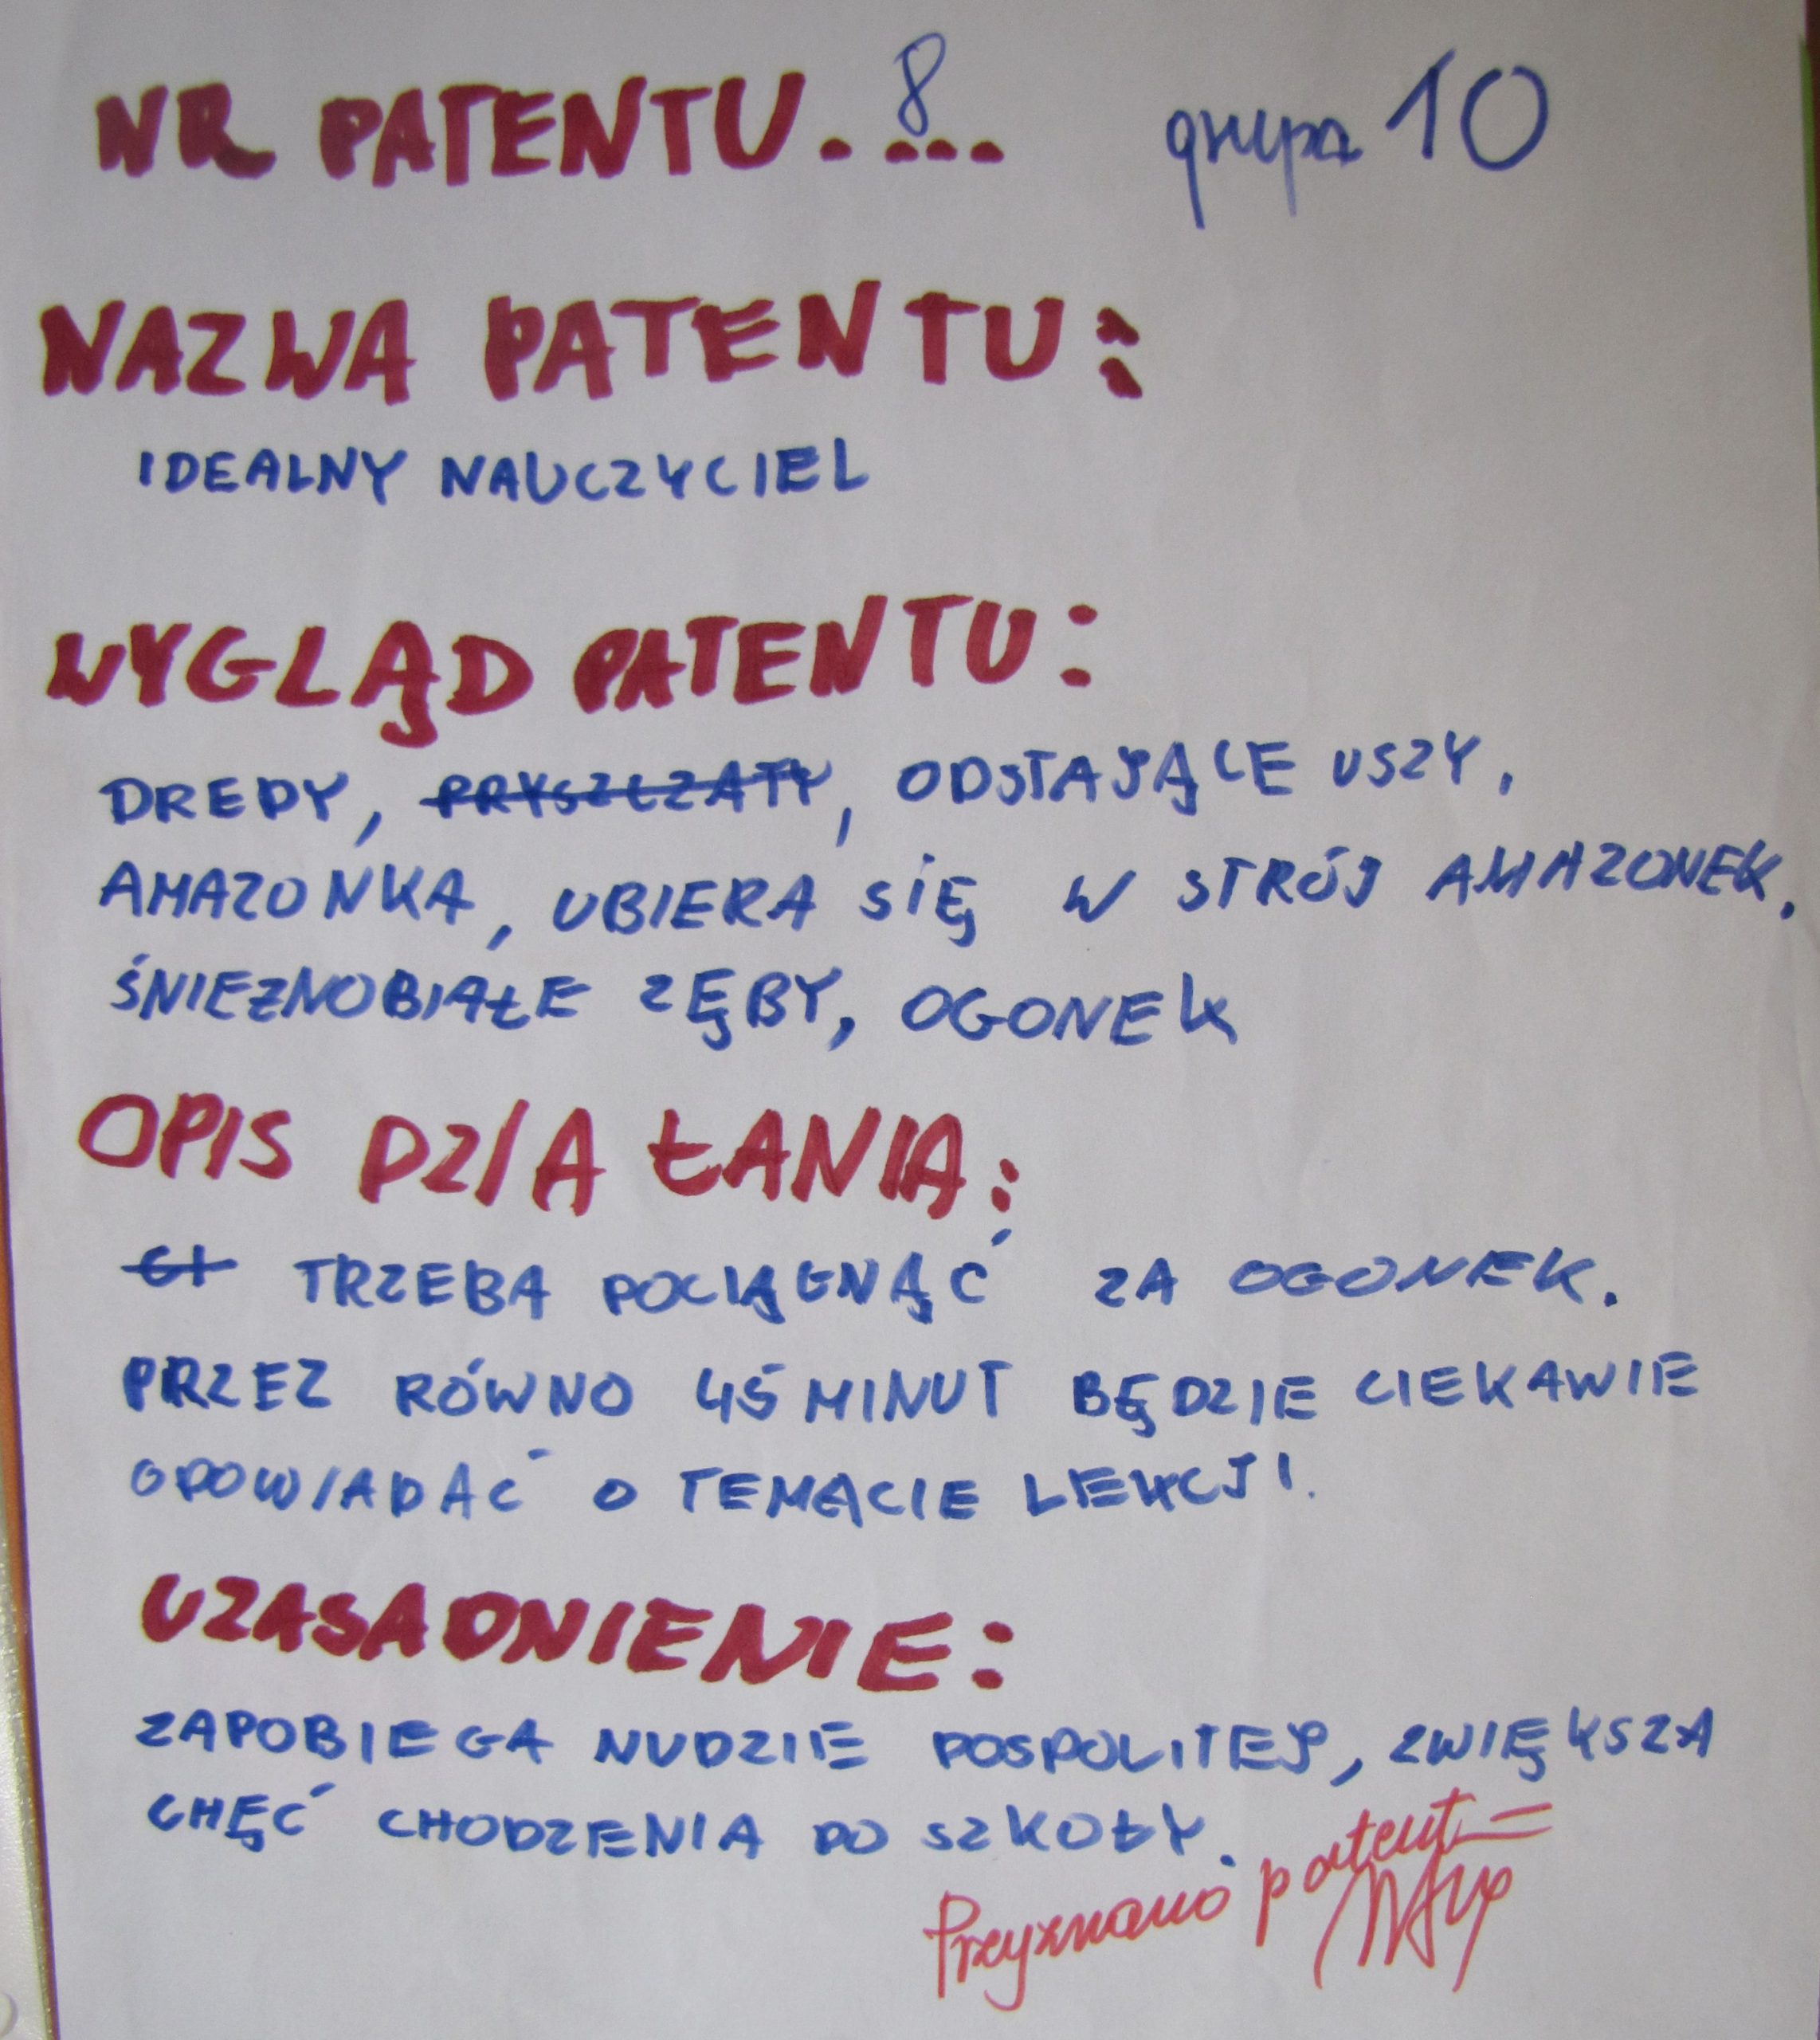 NR PATENTU. 8... grupa 10
NAZWA PATENTU:
IDEALNY NAUCZYCIEL
WYGLĄD PATENTU:
DREDY, PRYSZCZATY, ODSTAJĄCE USZY,
AMAZONKA, UBIERA SIĘ W STRÓJ AMAZONEK,
ŚNIEZNOBIAŁE ZĘBY, OGONEK
OPIS DZIAŁANIA:
TRZEBA POCIĄGNĄĆ ZA OGONEK.
PRZEZ RÓWNO 45 MINUT BĘDZIE CIEKAWIE
OPOWIADAĆ O TEMACIE LEKCJI.
UZASADNIENIE:
ZAPOBIEGA NUDZIE POSPOLITEJ, ZWIĘKSZA
CHĘĆ CHODZENIA DO SZKOŁY.
Przyznano patent